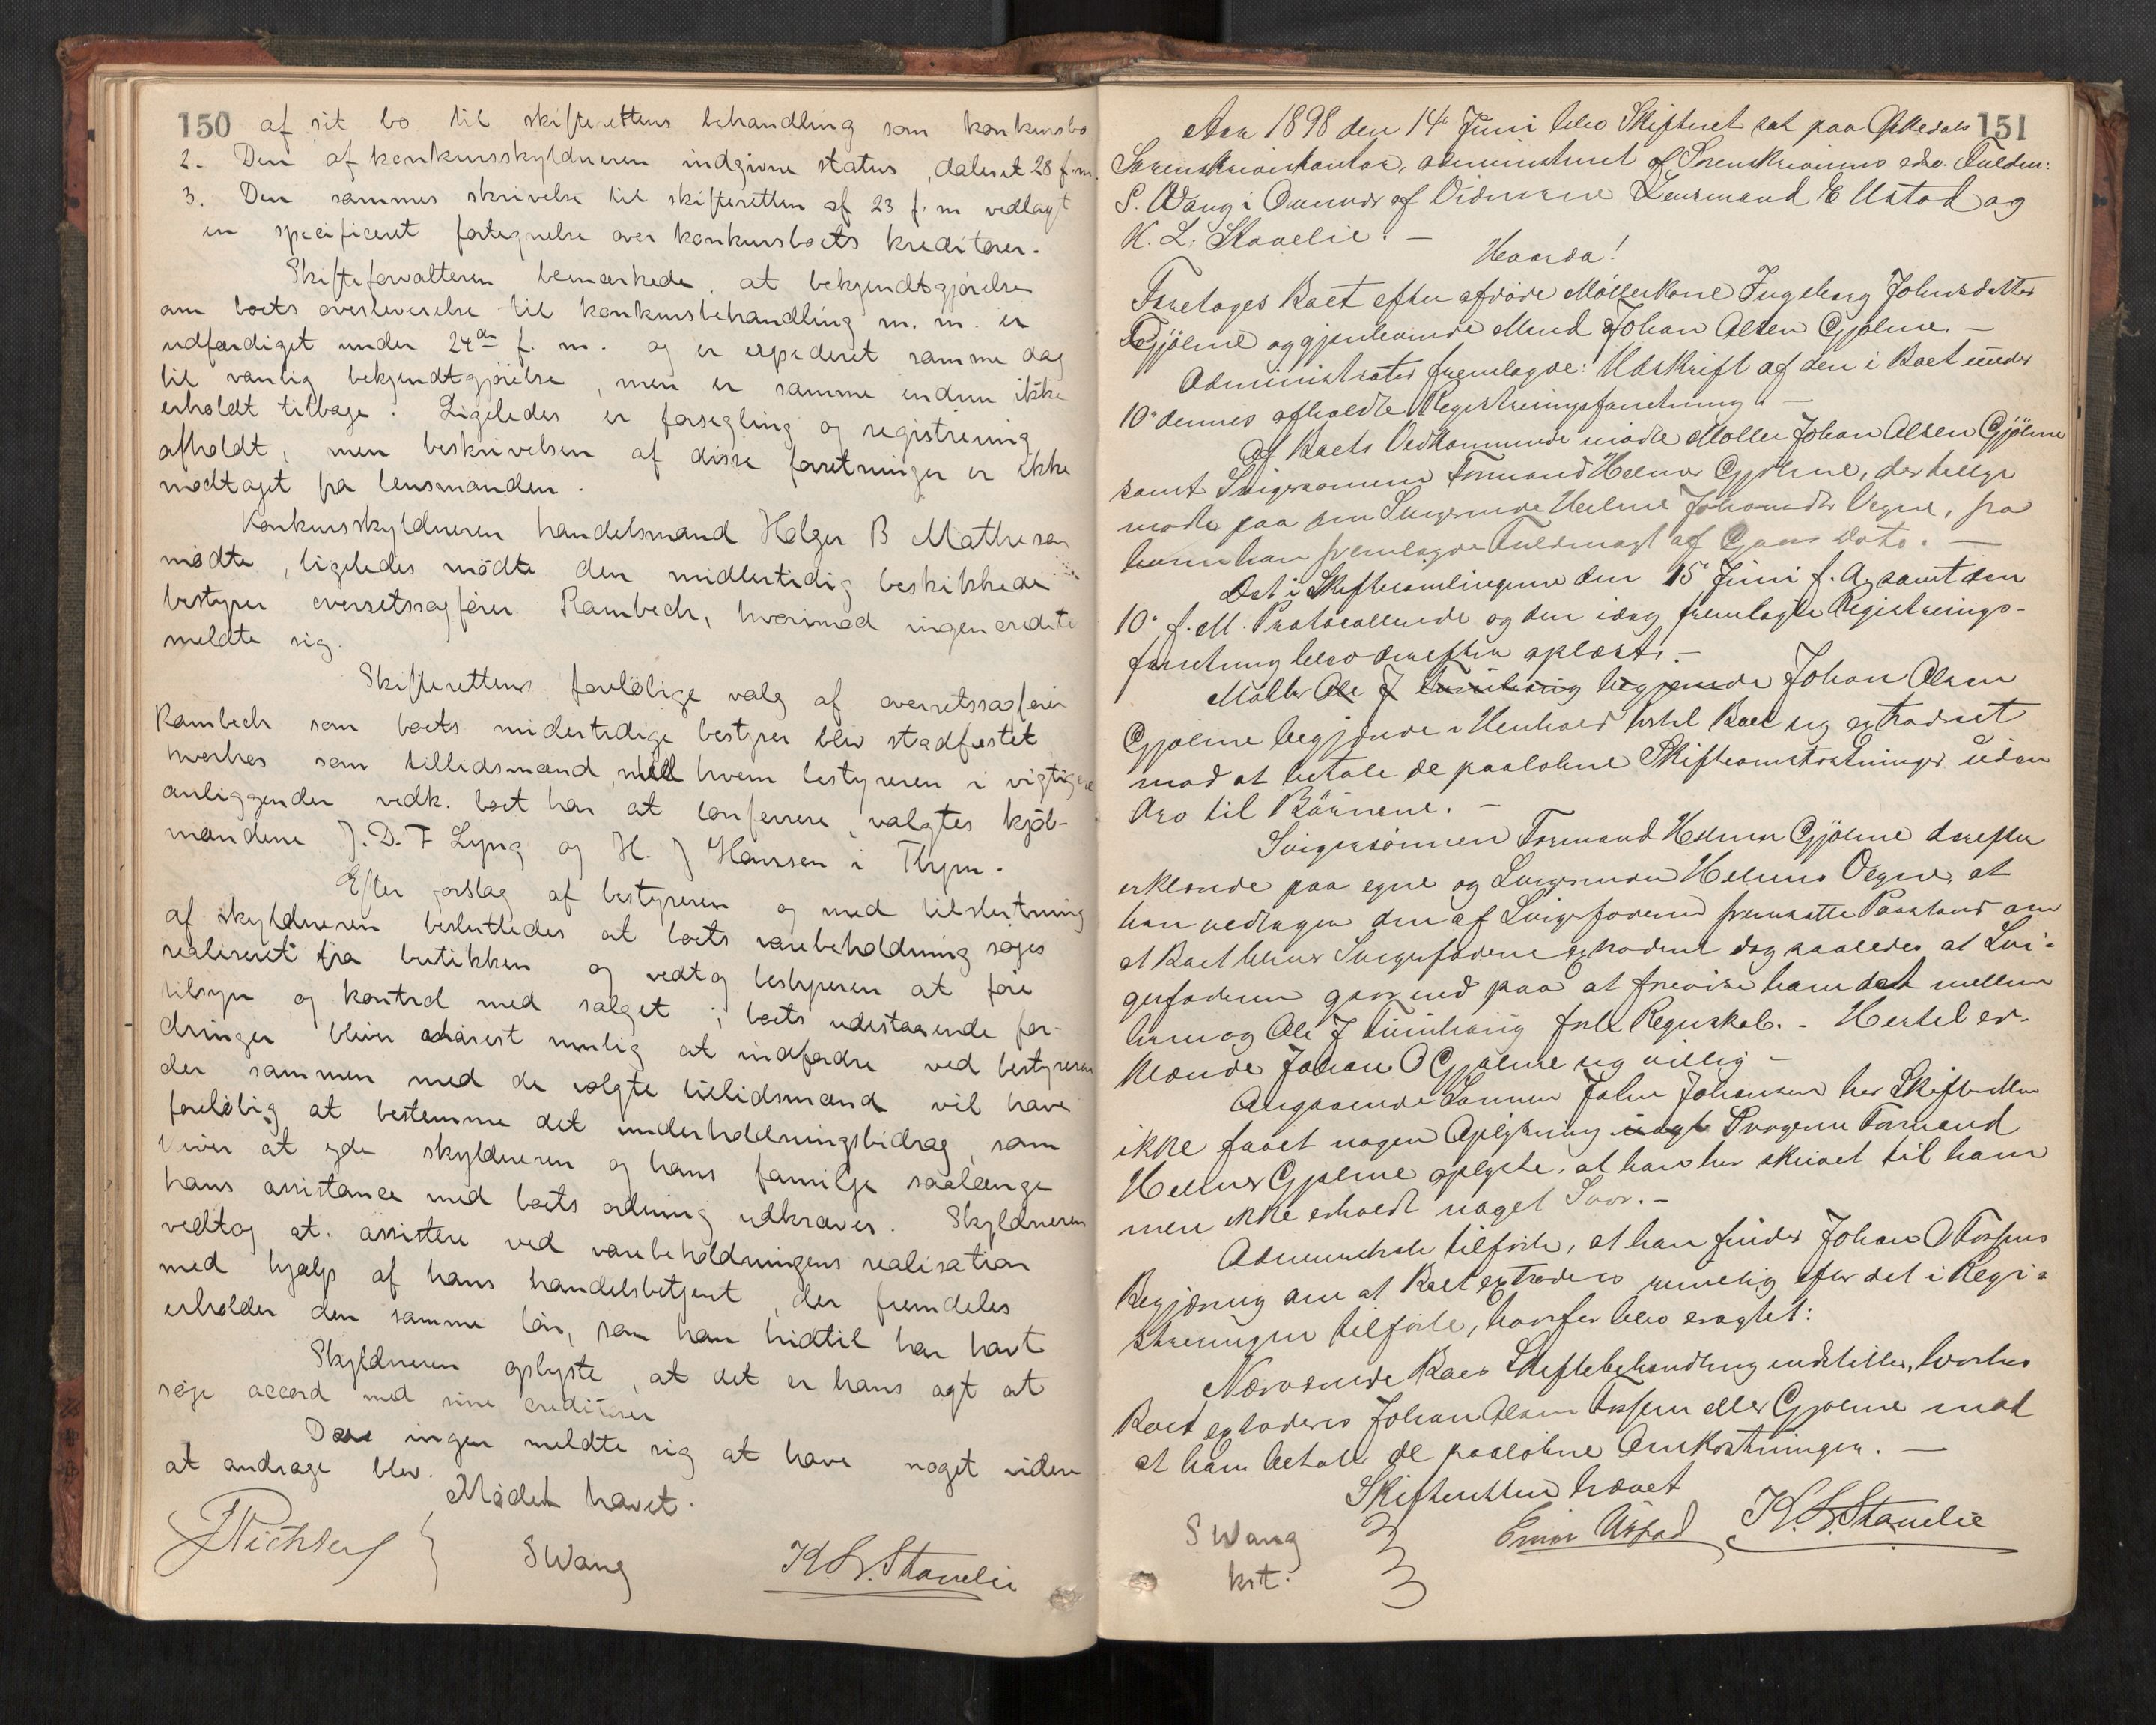 150
af sit bo til skifterettens behandling som konkursbo
2. Den af konkursskyldneren indgivne status, dateret 28 f. m.
3. Den sammes skrivelse til skifteretten af 23 f. m vedlagt
en specificeret fortegnelse over konkursboets kreditorer.
Skifteforvalteren bemærkede, at bekjendtgjørelse
om boets overleverelse til konkursbehandling m. m. er
udfærdiget under 24de f. m. og er expederet samme dag
til vanlig bekjendtgjørelse, men er samme endnu ikke
erholdt tilbage. Ligeledes er forsegling og registrering
afholdt, men beskrivelsen af disse forretninger er ikke
modtaget fra lensmanden.
Konkursskyldneren handelsmand Holger B Mathesen
mødte, ligeledes mødte den midlertidig beskikkede
bestyrer overretssagfører Rambech, hvorimod ingen credito
meldte sig.
Skifterettens foreløbige valg af overretssagfører
Rambech som boets midertidige bestyrer blev stadfæstet
hvorhos som tillidsmænd, med hvem bestyreren i vigtige
anliggender vedk. boet har at conferere, valgtes kjøb-
mændene J. D. F Lyng og H. J Hanssen i Thjem.
Efter forslag af bestyreren og med tilslutning
af skyldneren besluttedes at boets varebeholdning søges
realiseret fra butikken og vedtog bestyreren at føre
tilsyn og kontrol med salget; boets udestaaende for-
dringer bliver snarest mulig at indfordre ved bestyreren
der sammen med de valgte tillidsmænd vil have
foreløbig at bestemme det underholdningsbidrag, som
bliver at yde skyldneren og hans familje saalænge
hans assistance med boets ordning udkræves. Skyldneren
vedtog at assistere ved varebeholdningens realisation
med hjælp af hans handelsbetjent, der fremdeles
erholder den samme løn, som han hidtil har havt
Skyldneren oplyste, at det er hans agt at
søge accord med sine creditorer
Da ingen meldte sig at have noget videre
at andrage blev.
Mødet hævet.
Richter
S Wang
K. L. Stavelie
151
Aar 1898 den 14de Juni blev Skifteret sat paa Orkedals
Sorenskriverkontor, administreret af Sorenskriverens edsv. Fuldm:
S. Wang i Overvær af Vidnerne Lensmand E Ustad og
K. L. Stavelie. —
Hvorda!
Foretages Boet efter afdøde Møllerkone Ingeborg Johnsdatter
Gjølme og gjenlevende Mand Johan Olsen Gjølme. —
Administrator fremlagde: Udskrift af den i Boet under
10de dennes afholdte Registreringsforretning. —
Af Boets Vedkommende mødte Møller Johan Olsen Gjølme
samt Svigersønnen Formand Helmer Gjølme, der tillige
mødte paa sin Svigerinde Heline Johansdtr Vegne, fra
hvem han fremlagde Fuldmagt af Dato. —
Det i Skiftesamlingerne den 15de Juni f. A. samt den
10de f. M. Protocollerede og den idag fremlagte Registrerings-
forretning blev derefter oplæst. —
Møller Ole J begjærede Johan Olsen
Gjølme begjærede i Henhold hertil Boet sig extraderet
mod at betale de paaløbne Skifteomkostninger uden
Arv til Børnene. —
Svigersønnen Formand Helmer Gjølme derefter
erklærede paa egne og Svigerinden Helines Vegne, at
han vedtager den af Svigerfaderen fremsatte Paastand om
at Boet bliver Svigerfaderen extraderet dog saaledes at Svi-
gerfaderen gaar ind paa at forevise ham det mellem
ham og Ole J førte Regnskab. — Hertil er-
klærede Johan O Gjølme sig villig —
Angaaende Sønnen John Johansen har Skifteretten
ikke faaet nogen Oplysning Svogeren Formand
Helmer Gjølme oplyste, at han har skrevet til ham
men ikke erholdt noget Svar. —
Administrator tilførte, at han finder Johan O Fossens
Begjæring om at Boet extraderes rimelig efter det i Regi-
streringen tilførte, hvorfor blev eragtet:
Nærværende Boes Skiftebehandling indstilles, hvorhos
Boet extraderes Johan Olsen Fossem eller Gjølme mod
at han betaler de paaløbne Omkostninger. —
Skifteretten hævet
S Wang
kst.
Einar Ustad
K. L. Stavelie